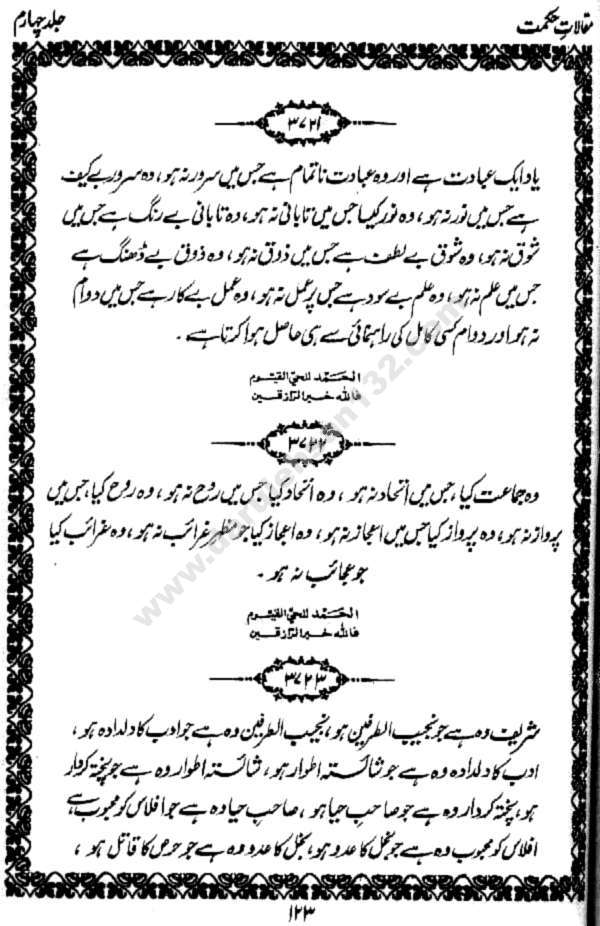 مقالاتِ حکمت
جلد چہارم
۳۷۲۱
یاد ایک عبادت ہے اور وہ عبادت ناتمام ہے جس میں سرور نہ ہو، وہ سرور بے کیف
ہے جس میں نور نہ ہو، وہ نور کیسا جس میں تابانی نہ ہو، وہ تابانی بے رنگ ہے جس میں
شوق نہ ہو، وہ شوق بے لطف ہے جس میں ذوق نہ ہو، وہ ذوق بے ڈھنگ ہے
جس میں علم نہ ہو، وہ علم بے سود ہے جس پر عمل نہ ہو، وہ عمل بے کار ہے جس میں دوام
نہ ہو اور دوام کسی کامل کی راہنمائی سے ہی حاصل ہوا کرتا ہے۔
الحمد للحی القیوم
فاللہ خیر الرازقین
۳۷۲۲
وہ جماعت کیا، جس میں اتحاد نہ ہو، وہ اتحاد کیا جس میں روح نہ ہو، وہ روح کیا، جس میں
پرواز نہ ہو، وہ پرواز کیا جس میں اعجاز نہ ہو، وہ اعجاز کیا جو مظہرِ غرائب نہ ہو، وہ غرائب کیا
جو عجائب نہ ہو۔
الحمد للحی القیوم
فاللہ خیر الرازقین
۳۷۲۳
شریف وہ ہے جو نجیب الطرفین ہو، نجیب الطرفین وہ ہے جو ادب کا دلدادہ ہو،
ادب کا دلدادہ وہ ہے جو شائستہ اطوار ہو، شائستہ اطوار وہ ہے جو پختہ کردار
ہو، پختہ کردار وہ ہے جو صاحبِ حیا ہو، صاحبِ حیا وہ ہے جو افلاس کو محبوب سمجھے،
افلاس کو محبوب وہ ہے جو بخل کا عدو ہو، بخل کا عدو وہ ہے جو حرص کا قاتل ہو،
۱۲۳